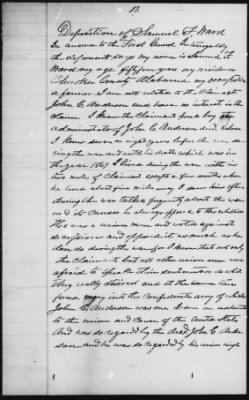 12
Deposition of Samuel F. Ward
In answer to the First General Interrogatory
the deponent says my name is Samuel F.
Ward my age fifty five years my residence
Cherokee County Alabama my occupation
a farmer I am not related to the Claimant
John C. Anderson and have no interest in the
claim I knew the Claimant from a boy
administrator of John C. Anderson died, whom
I knew seven or eight years before the war
during the war, and till his death which was in
the year 1869 I lived during the war with in
two miles of Claimant except a few months when
he lived about five miles away I saw him often
during the war talked frequently about the war
and its causes he always opposed the rebellion
He was a union man and voted against
secession and opposed it as much as he
dare do during the war for I know that not only
the Claimant but all other union men were
afraid to speak their sentiments or do what
they really desired and at the same time
forced many into the confederate army of which
John C. Anderson was one
to the union and cause of the United States
And was so regarded by the dec'd John C. Ander
son and he was so regarded by his union neigh